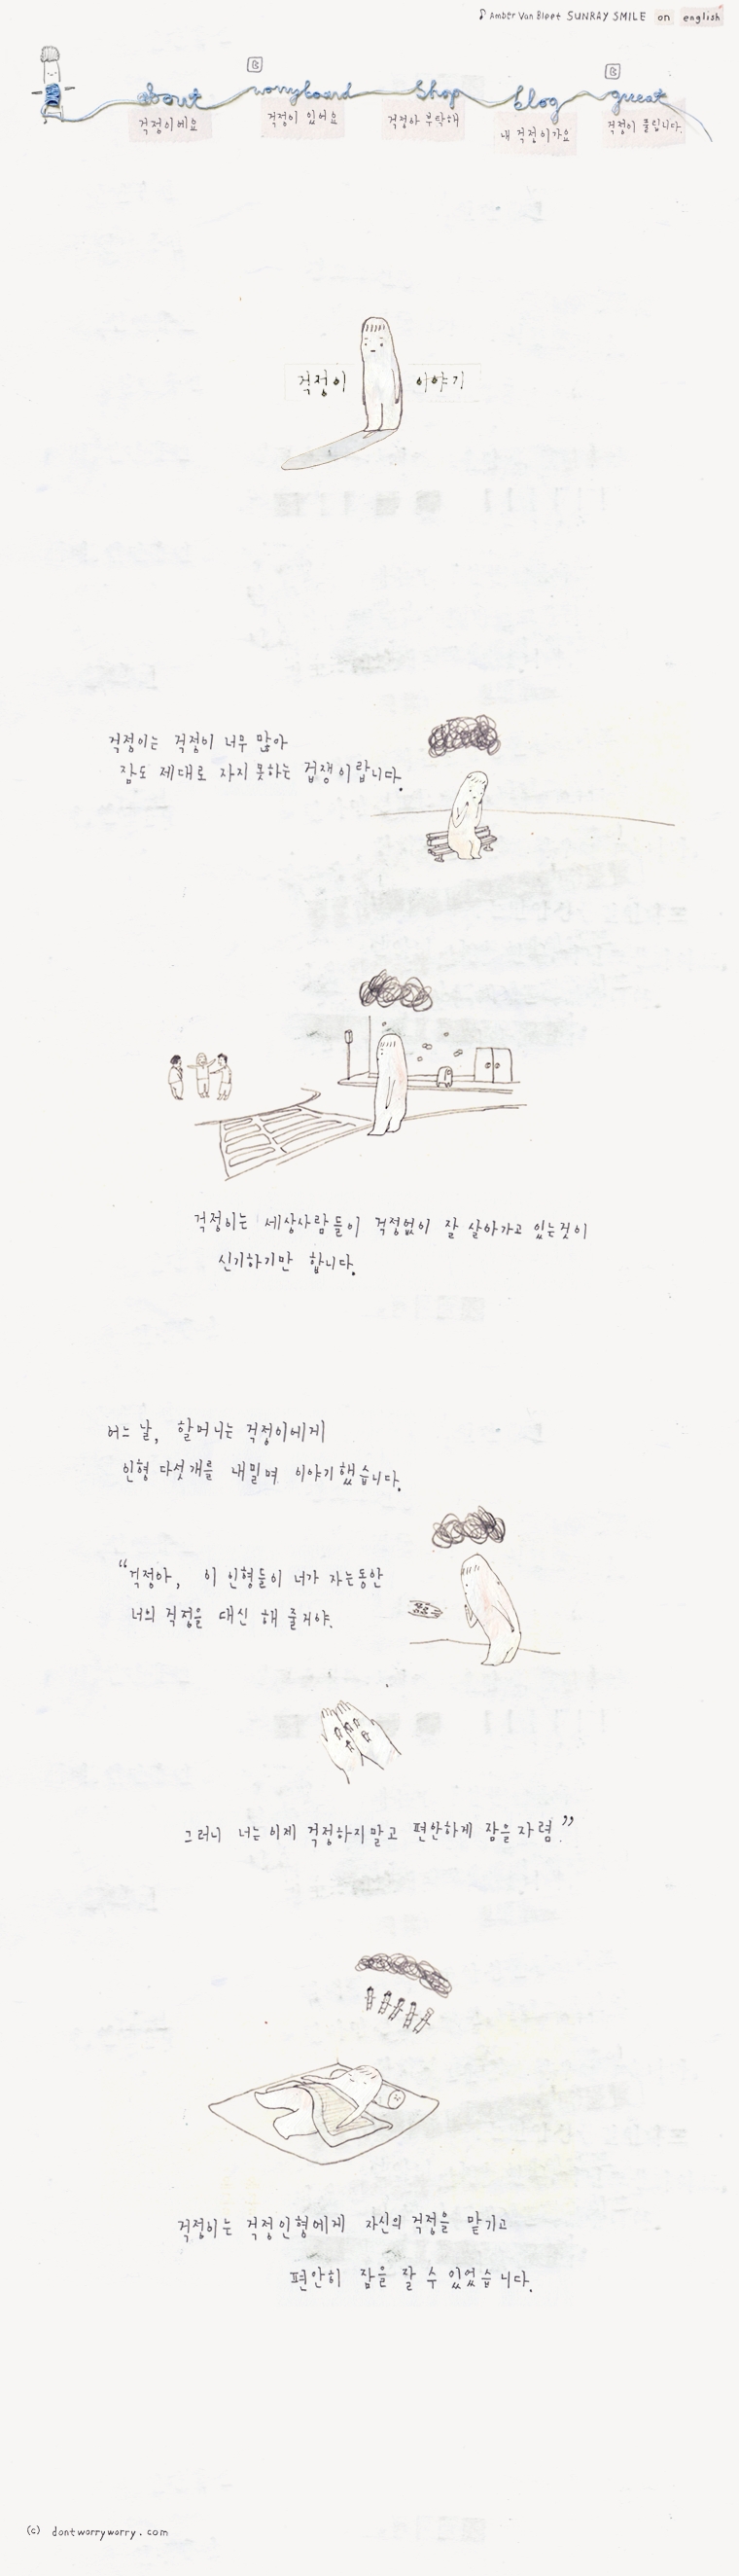 Amber Van Bleet SUNRAY SMILE on english
B
B
about worryboard shop blog greeat
걱정이에요 걱정이 있어요 걱정아 부탁해 내 걱정이가요 걱정이 풀립니다.
걱정이 이야기
걱정이는 걱정이 너무 많아
잠도 제대로 자지 못하는 겁쟁이랍니다.
걱정이는 세상사람들이 걱정없이 잘 살아가고 있는것이
신기하기만 합니다.
어느 날, 할머니는 걱정이에게
인형 다섯개를 내밀며 이야기했습니다.
“걱정아, 이 인형들이 너가 자는동안
너의 걱정을 대신 해 줄거야.
그러니 너는 이제 걱정하지말고 편안하게 잠을 자렴.”
걱정이는 걱정인형에게 자신의 걱정을 맡기고
편안히 잠을 잘 수 있었습니다.
(c) dontworryworry.com